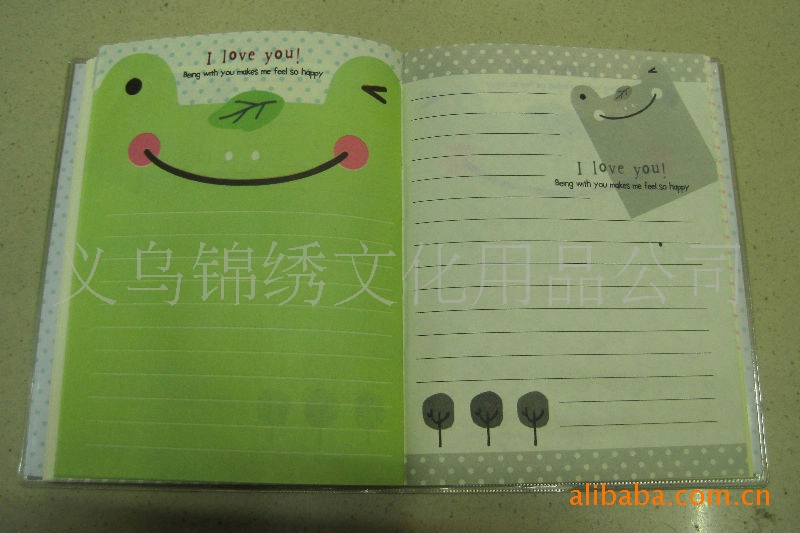 I love you!
Being with you makes me feel so happy
I love you!
Being with you makes me feel so happy
义乌锦绣文化用品公司
alibaba.com.cn